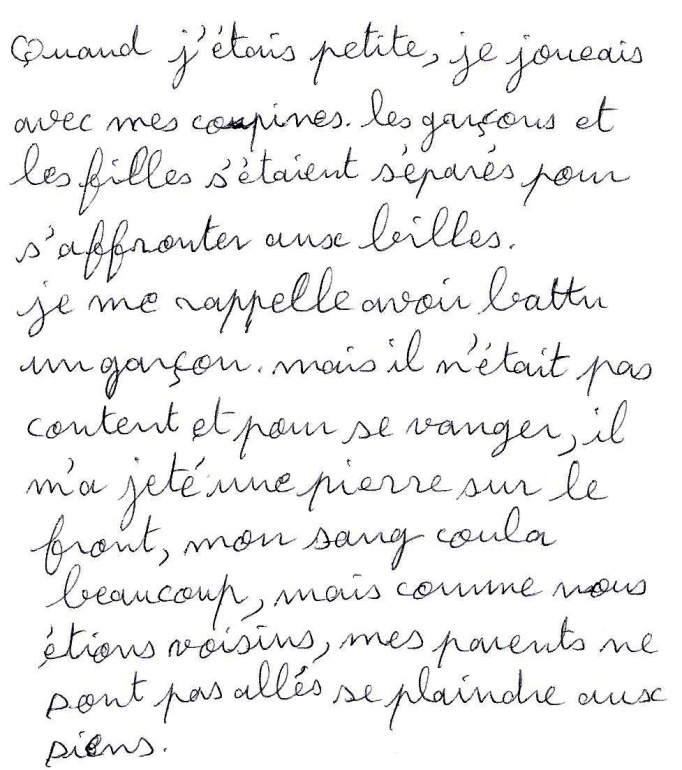 Quand j'étais petite, je joueais
avec mes copines. les garçons et
les filles s'étaient séparés pour
s'affronter aux billes.
je me rappelle avoir battu
un garçon. mais il n'était pas
content et pour se vanger, il
m'a jeté une pierre sur le
front, mon sang coula
beaucoup, mais comme nous
étions voisins, mes parents ne
sont pas allés se plaindre aux
siens.